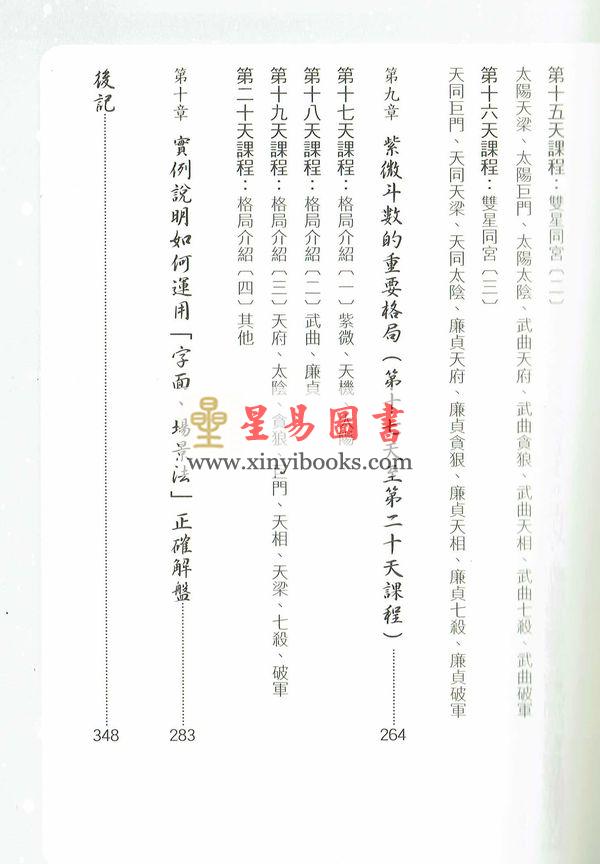 第十五天課程：雙星同宮〔二〕
太陽天梁、太陽巨門、太陽太陰、武曲天府、武曲貪狼、武曲天相、武曲七殺、武曲破軍
第十六天課程：雙星同宮〔三〕
天同巨門、天同天梁、天同太陰、廉貞天府、廉貞貪狼、廉貞天相、廉貞七殺、廉貞破軍
第九章 紫微斗數的重要格局（第十七天至第二十天課程）……264
第十七天課程：格局介紹〔一〕紫微、天機、太陽
第十八天課程：格局介紹〔二〕武曲、廉貞
第十九天課程：格局介紹〔三〕天府、太陰、貪狼、巨門、天相、天梁、七殺、破軍
第二十天課程：格局介紹〔四〕其他
第十章 實例說明如何運用「字面、場景法」正確解盤……283
後記……348
星易圖書
www.xinyibooks.com